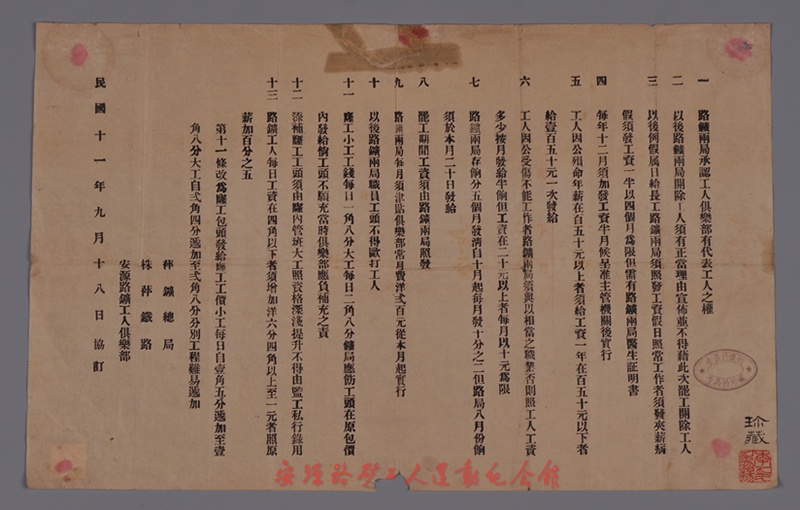 一　路鑛兩局承認工人俱樂部有代表工人之權
二　以後路鑛兩局開除工人須有正當理由宣佈並不得藉此次罷工開除工人
三　以後例假屬日給長工路鑛兩局須照發工資假日照當工作者須發夾薪病
假須發工資一半以四個月為限但需有路鑛兩局醫生証明書
四　每年十二月須加發工資半月候呈准主管機關後實行
五　工人因公殞命年薪在百五十元以上者須給工資一年在百五十元以下者
給壹百五十元一次發給
六　工人因公受傷不能工作者路鑛兩局須與以相當之職業否則照工人工資
多少按月發給半餉但工資在二十元以上者每月以十元為限
七　路鑛兩局存餉分五個月發清自十月起每月發十分之二但路局八月份餉
須於本月二十日發給
八　罷工期間工資須由路鑛兩局照發
九　路鑛兩局每月須津貼俱樂部常月費洋弍百元從本月起實行
十　以後路鑛兩局職員工頭不得毆打工人
十一　窿工小工工錢每日一角八分大工每日二角八分鑛局應飭工頭在原包價
內發給倘工頭不願充當時俱樂部應負補充之責
十二　添補窿工工頭須由窿內管班大工照資格深淺提升不得由監工私行錄用
十三　路鑛工人每日工資在四角以下者須增加洋六分四角以上至一元者照原
薪加百分之五
第十一條改為窿工包頭發給窿工工價小工每日自壹角五分遞加至壹
角八分大工自弍角四分遞加至弍角八分分別工程難易遞加
萍鑛總局
株萍鐵路
安源路鑛工人俱樂部
民國十一年九月十八日協訂
珍藏
安源路矿工人运动纪念館